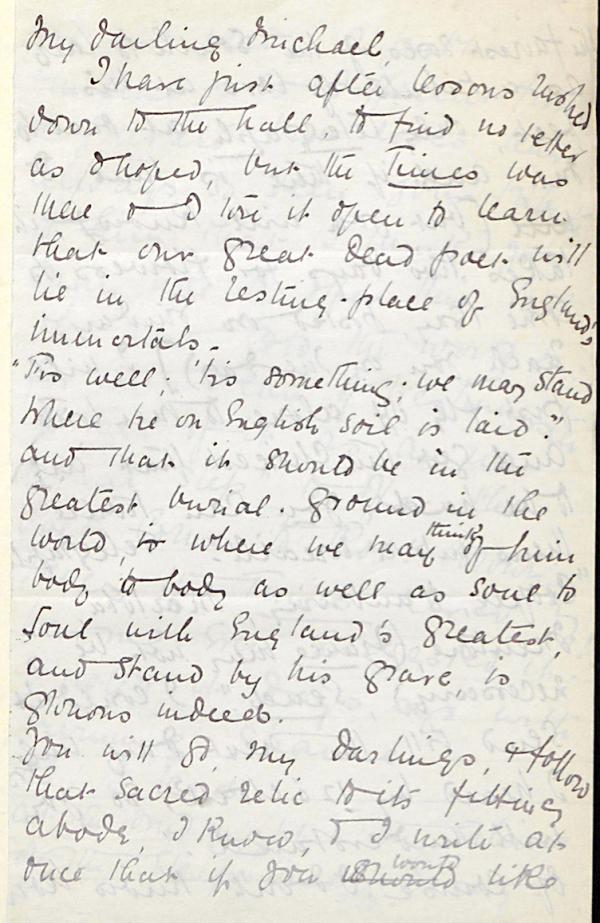 My darling Michael,
I have just after lessons rushed
down to the hall to find no letter
as I hoped, but the Times was
there & I tore it open to learn
that our great dead poet will
lie in the resting-place of England's
immortals.
"'Tis well; 'tis something; we may stand
Where he on English soil is laid."
and that it should be in the
greatest burial-ground in the
world, is where we may think of him
body to body as well as soul to
soul with England's greatest,
and stand by his grave, is
glorious indeed.
You will go, my darlings, & follow
that sacred relic to its fitting
abode, I know, & I write at
once that if you should would like